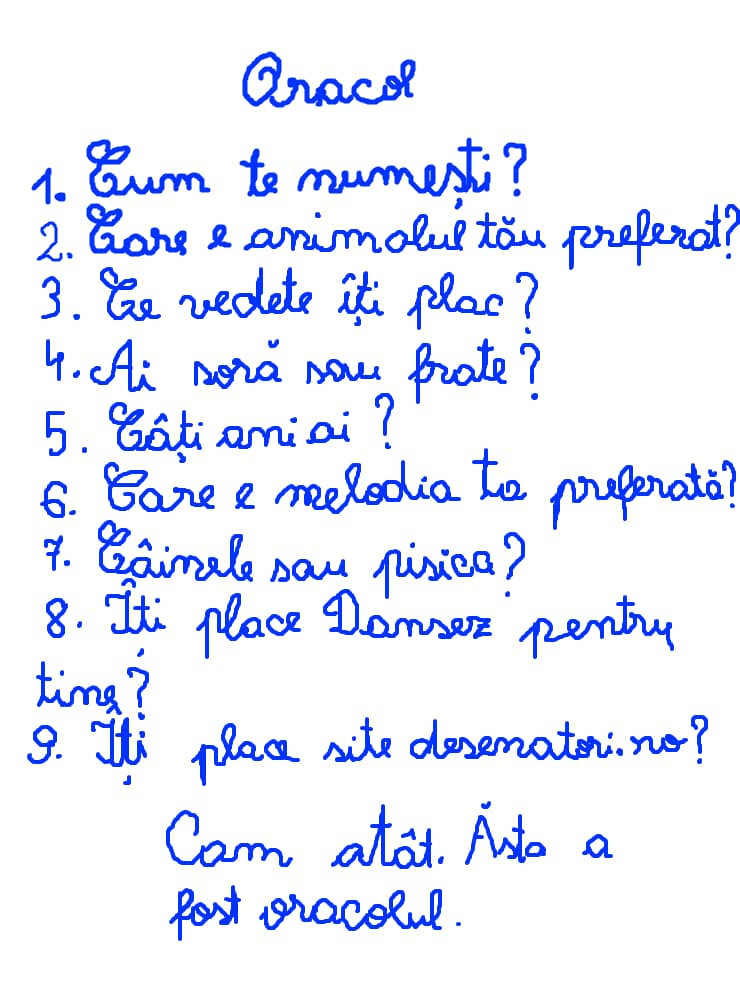 Oracol
1. Cum te numești?
2. Care e animalul tău preferat?
3. Ce vedete îți plac?
4. Ai soră sau frate?
5. Câți ani ai?
6. Care e melodia ta preferată?
7. Câinele sau pisica?
8. Îti place Dansez pentru
tine?
9. Îți place site desenatori.ro?
Cam atât. Ăsta a
fost oracolul.